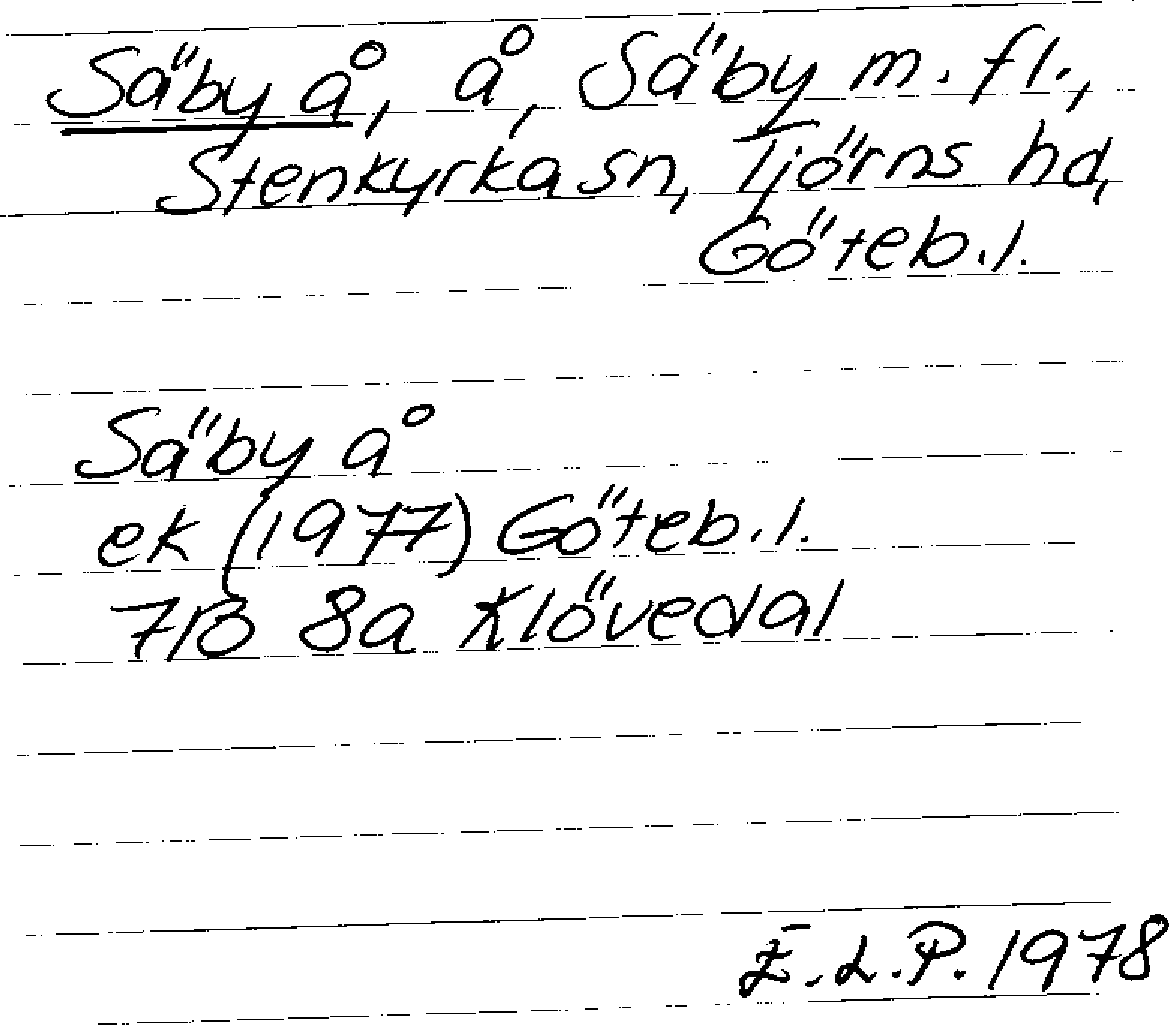 Säby å, å, Säby m. fl.,
Stenkyrka sn, Tjörns hd,
Göteb. l.
Säby å
ek (1977) Göteb. l.
7B 8a Klövedal
E.L.P. 1978